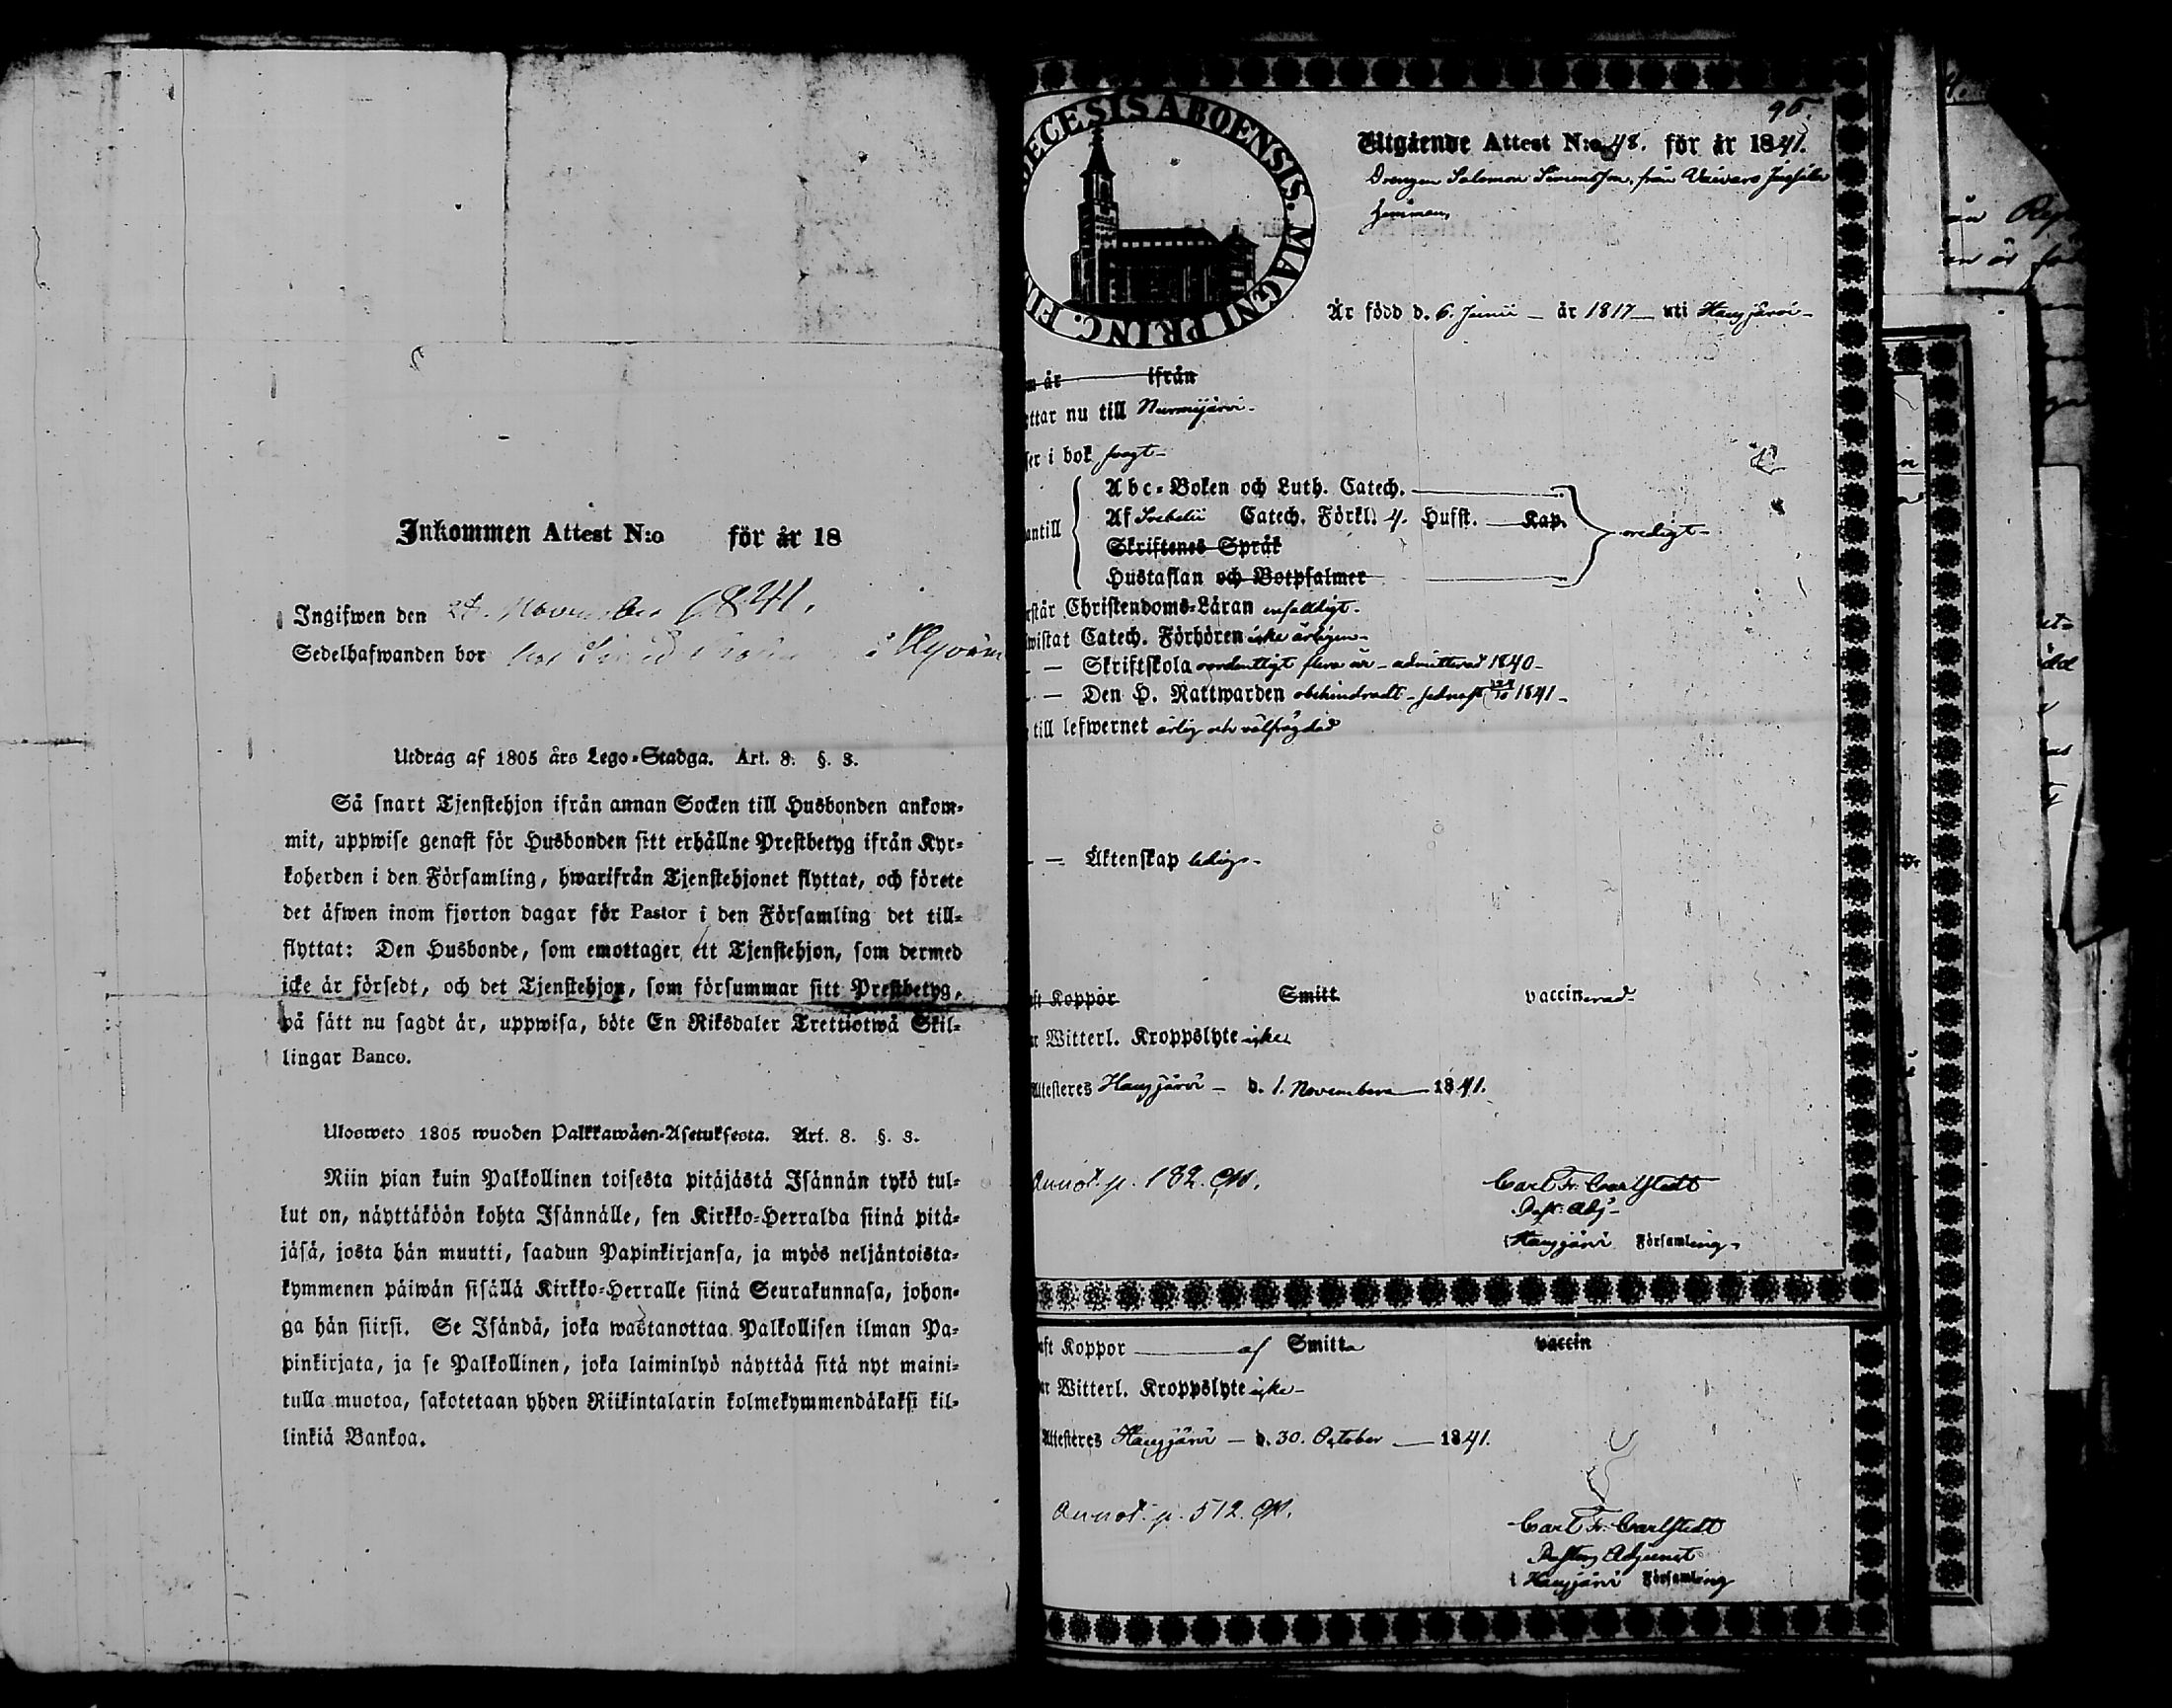 Inkommen Attest N:o för år 18
Ingifwen den 28. November 1841.
Sedelhafwanden bor hos i Hyvin
Utdrag af 1805 års Lego-Stadga. Art. 8. §. 3.
Så snart Tjenstehjon ifrån annan Socken till Husbonden ankom-
mit, uppwise genast för Husbonden sitt erhållne Prestbetyg ifrån Kyr-
koherden i den Församling, hwarifrån Tjenstehjonet flyttat, och förete
det äfwen inom fjorton dagar för Pastor i den Församling det till-
flyttat: Den Husbonde, som emottager ett Tjenstehjon, som dermed
icke är försedt, och det Tjenstehjon, som försummar sitt Prestbetyg,
på sätt nu sagdt är, uppwisa, böte En Riksdaler Trettiotwå Skil-
lingar Banco.
Ulosweto 1805 wuoden Palkkawäen-Asetuksesta. Art. 8. §. 3.
Niin pian kuin Palkollinen toisesta pitäjästä Isännän tykö tul-
lut on, näyttäköön kohta Isännälle, sen Kirkko-Herralda siinä pitä-
jäsä, josta hän muutti, saadun Papinkirjansa, ja myös neljäntoista-
kymmenen päiwän sisällä Kirkko-Herralle siinä Seurakunnasa, johon-
ga hän siirsi. Se Isändä, joka wastanottaa Palkollisen ilman Pa-
pinkirjata, ja se Palkollinen, joka laiminlyö näyttää sitä nyt maini-
tulla muotoa, sakotetaan yhden Riikintalarin kolmekymmendäkaksi kil-
linkiä Bankoa.
95.
DECESIS ABOENSIS. MAGNI PRINC. FIN
Utgående Attest N:o 48. för år 1841.
Drengen Salomon Simonsson, från Vaivaro
hemman,
Är född d. 6. Junii – år 1817 – uti Hausjärvi –
m år ifrån
ttar nu till Nurmijärvi –
ser i bok svagt –
antill
Abc-Boken och Luth. Catech.
Af Svebelii Catech. Förkl. 4. Hufst. Kap.
Skriftenes Språk
Hustaflan och Botpsalmer
oredigt –
rstår Christendoms-Läran enfalldigt –
wistat Catech. Förhören icke årligen –
– Skriftskola oordentligt flera år – admitterad 1840 –
– Den H. Nattwarden obehindradt – sednast 1841 –
till lefwernet ärlig och välfrägdad
– – Äktenskap ledig –
ft Koppor Smitt vaccinerad –
r Witterl. Kroppslyte icke
Attesteres Hausjärvi – d. 1. November – 1841.
Annot. p. 182. GM.
Carl Fr. Carlstedt
Past. Adj –
i Hausjärvi Församling –
aft Koppor af Smitta vaccin
ar Witterl. Kroppslyte icke –
Attesteres Hausjärvi – d. 30. October – 1841.
Annot. p. 512. GM.
Carl Fr. Carlstedt
Pastors Adjunct
i Hausjärvi Församling